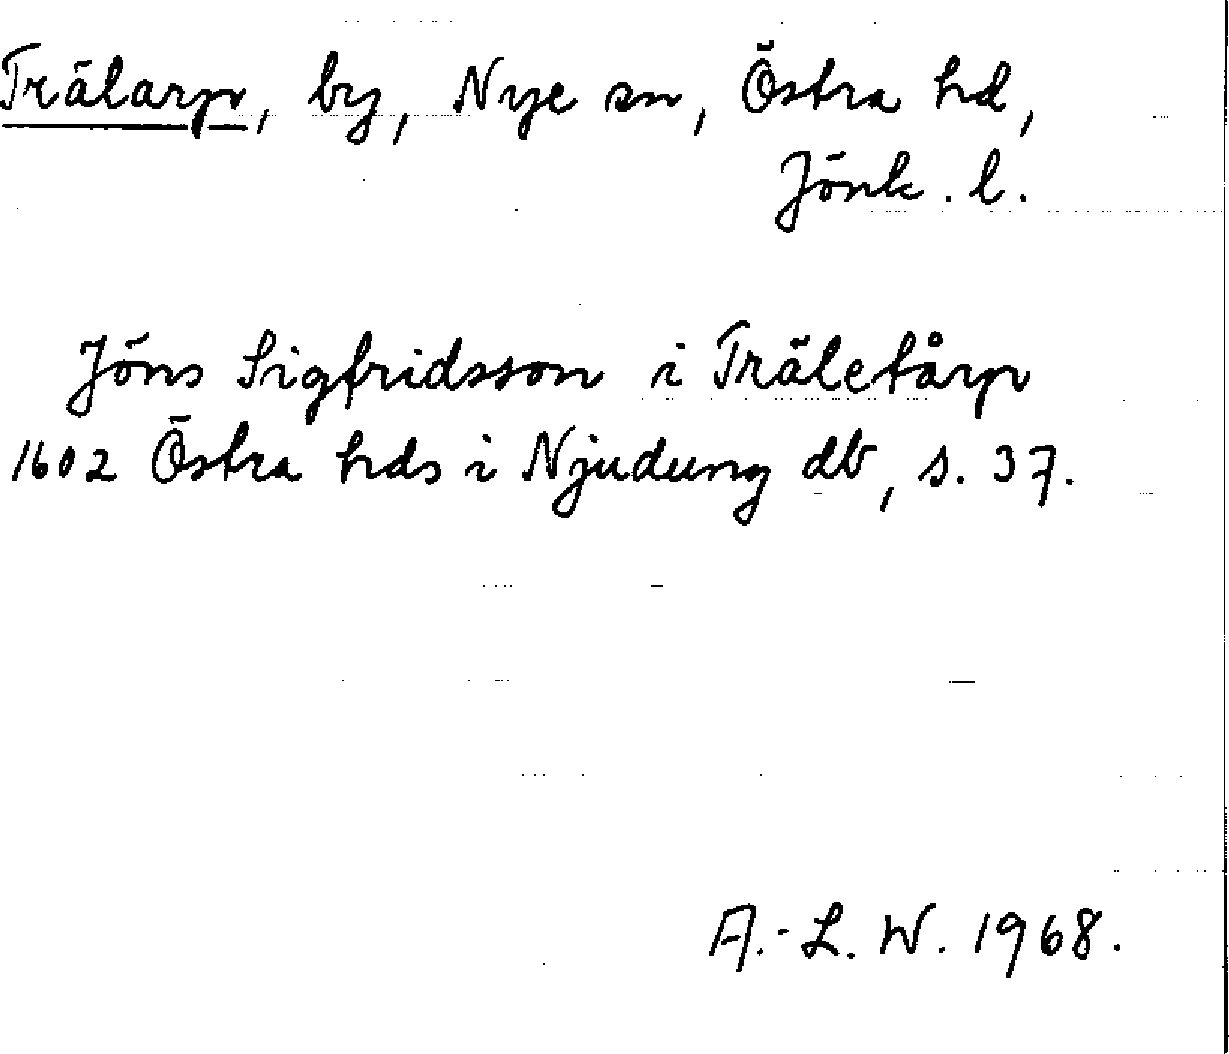 Trälarp, by, Nye sn, Östra hd,
Jönk. l.
Jöns Sigfridsson i Träletårp
1602 Östra hds i Njudung db, s. 37.
A.-L. W. 1968.